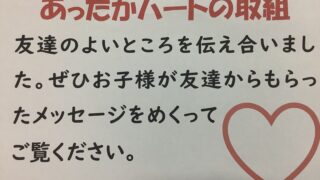 あったかハートの取組
友達のよいところを伝え合いまし
た。ぜひお子様が友達からもらっ
たメッセージをめくって
ご覧ください。